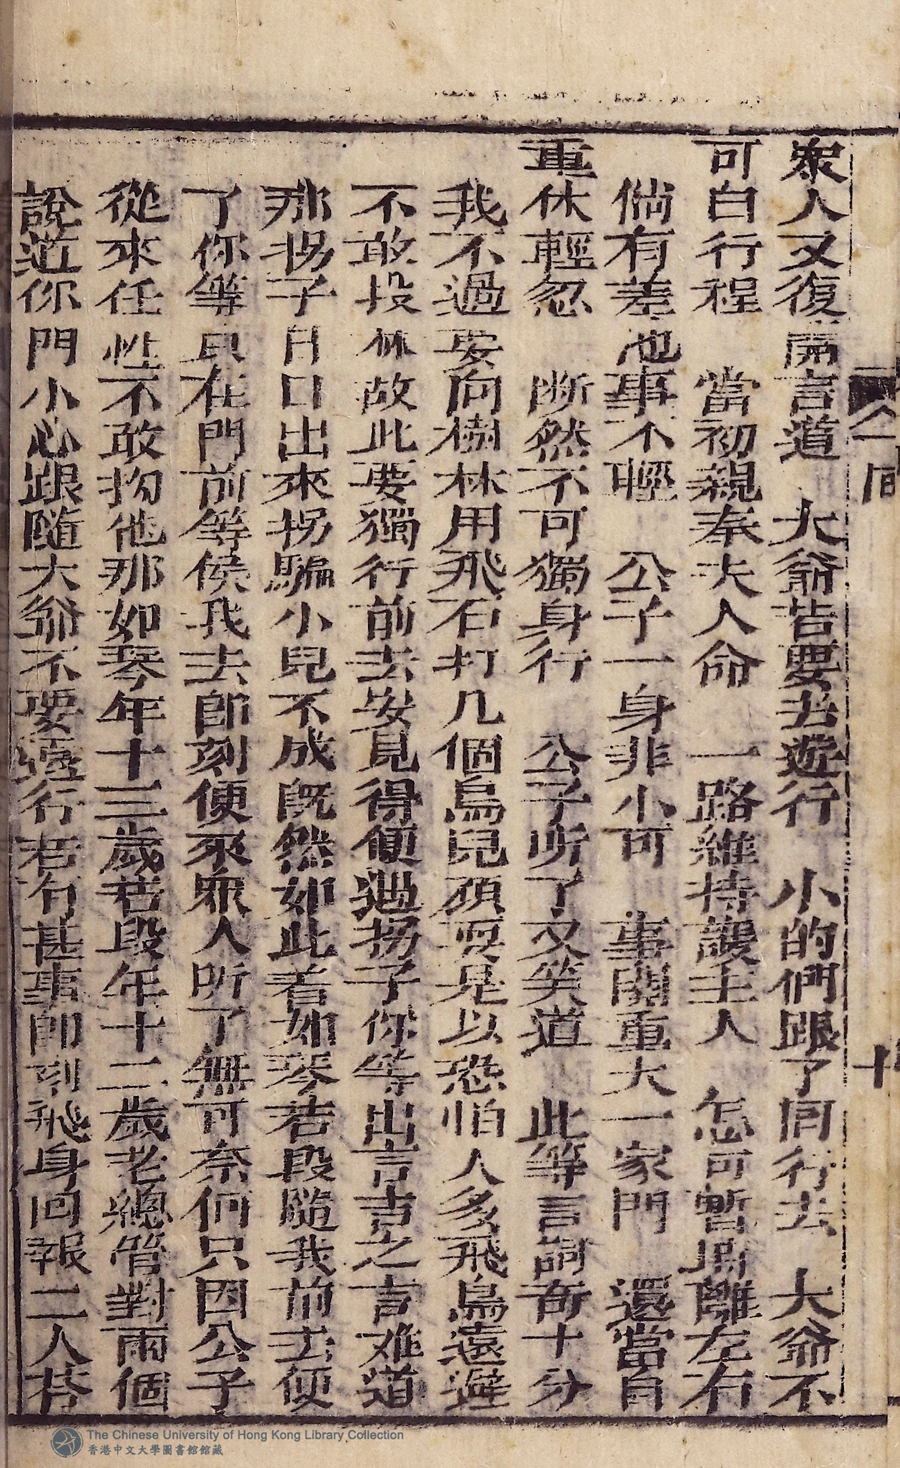 衆人又復開言道　大爺若要去遊行　小的們跟了同行去　大爺不
可自行程　當初親奉夫人命　一路維持護主人　怎可暫時離左右
倘有差池事不輕　公子一身非小可　事關重大一家門　還當自
重休輕忽　断然不可獨身行　公子听了又笑道　此等言詞奇十分
我不過要向樹林用飛石打几個鳥兒頑耍是以恐怕人多飛鳥遠避
不敢投林故此要獨行前去安見得便遇拐子你等出言之言难道
那拐子日日出來拐騙小兒不成既然如此着如琴若段隨我前去便
了你等只在門前等侯我去即刻便來衆人听了無可奈何只因公子
從來任性不敢拘他那如琴年十三歲若段年十二歲老總管對兩個
說道你門小心跟隨大爺不要遠行若有甚事即刻飛身回報二人荅
回
十
The Chinese University of Hong Kong Library Collection
香港中文大學圖書館館藏